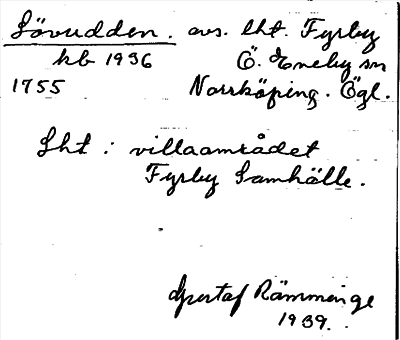 Lövudden. avs. lht. Fyrby
kb 1936 Ö. Eneby sn
1755 Norrköping. Ögl.
Lht : villaområdet
Fyrby Samhälle.
Gustaf Rämminge
1939.